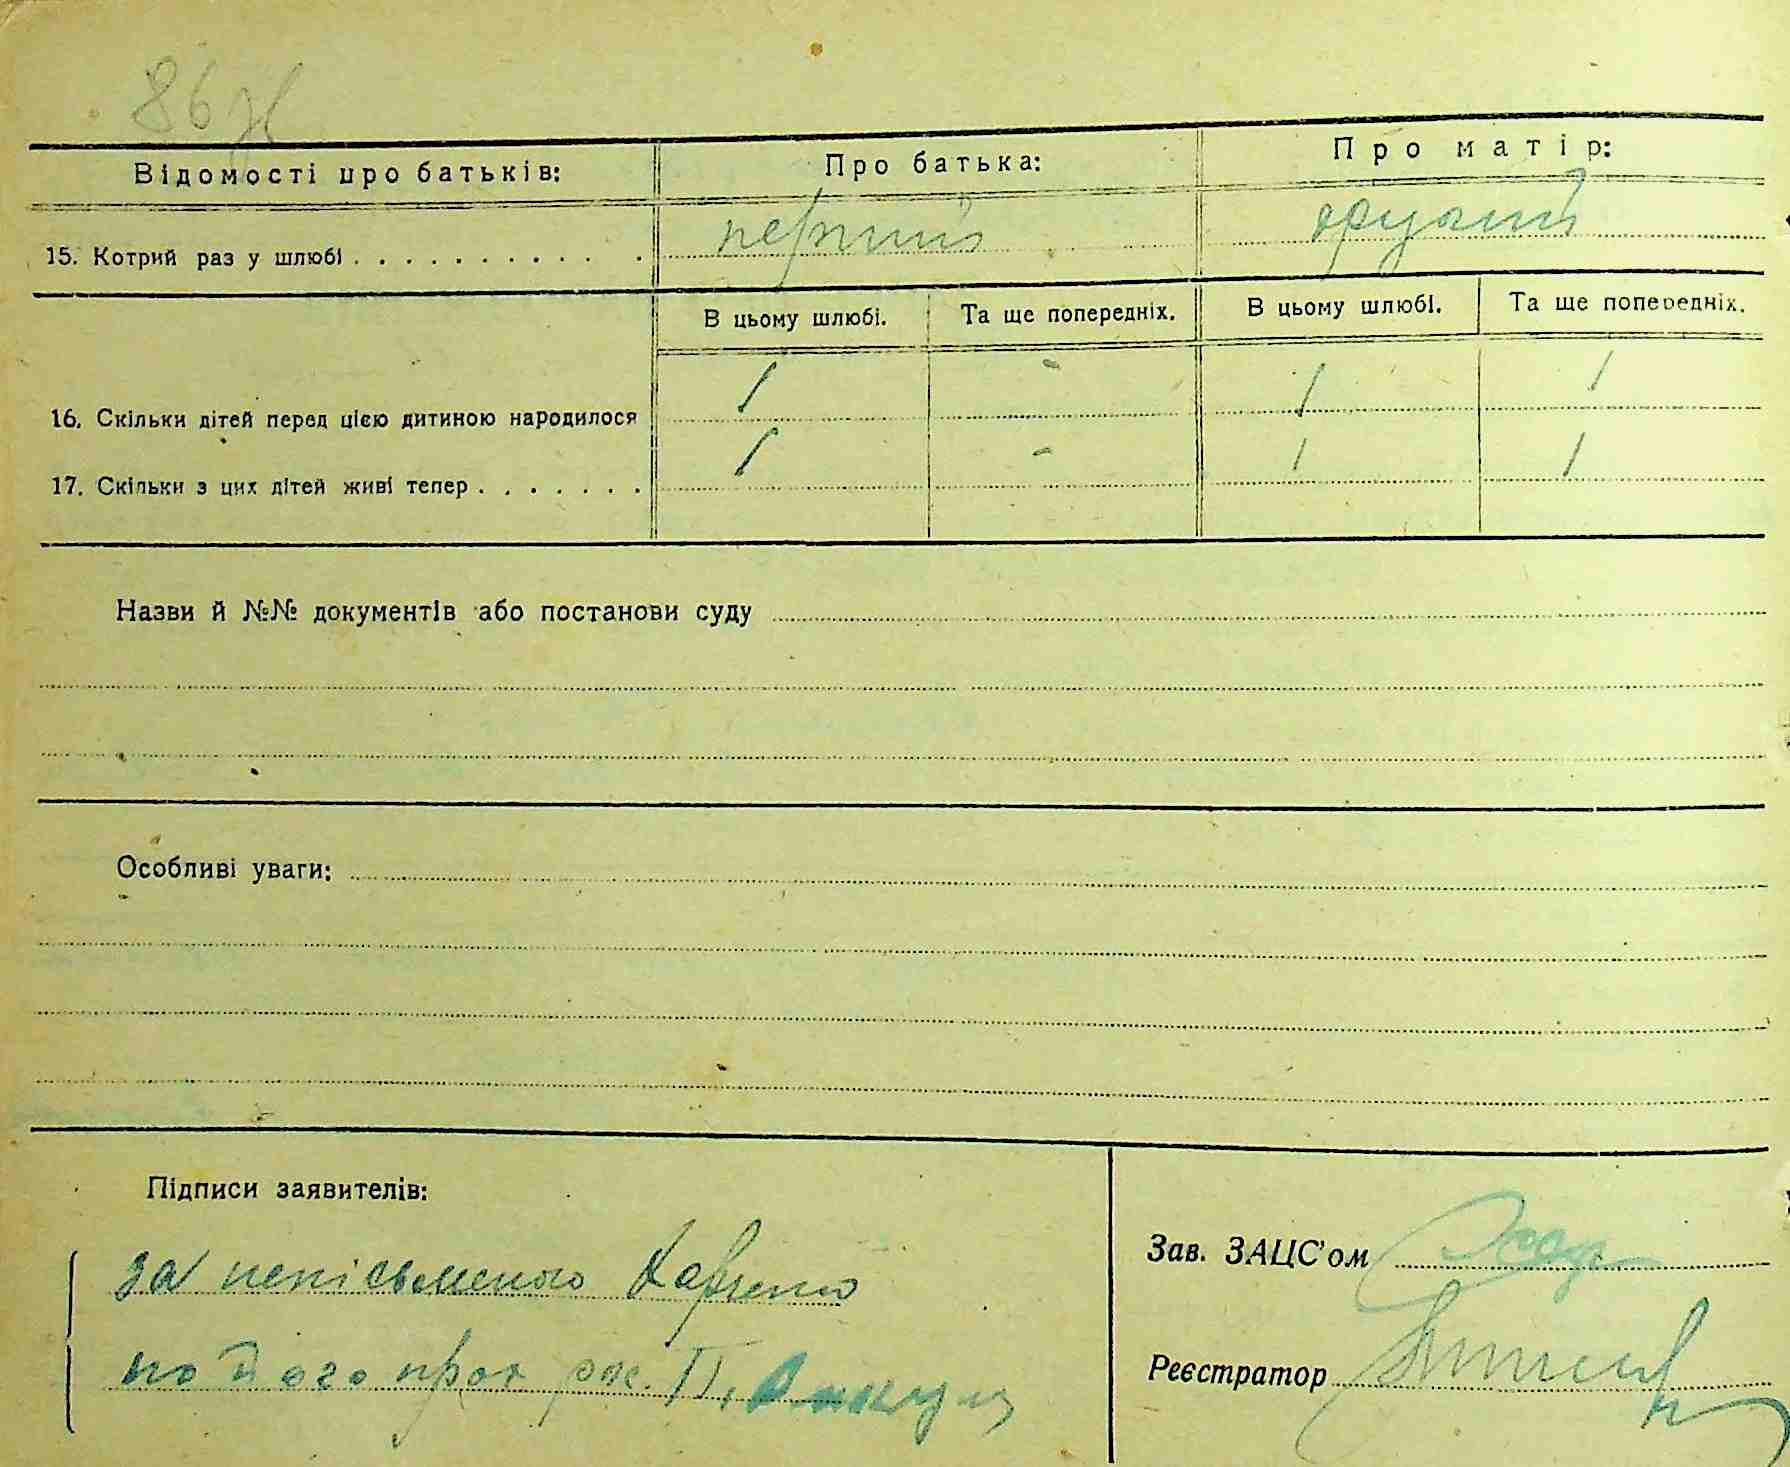 86
Відомості про батьків: Про батька: Про матір:
15. Котрий раз у шлюбі . . . . . . . . . . . . перший другий
В цьому шлюбі. Та ще попередніх. В цьому шлюбі. Та ще попередніх.
16. Скільки дітей перед цією дитиною народилося 1 - 1 1
17. Скільки з цих дітей живі тепер . . . . . . . 1 - 1 1
Назви й №№ документів або постанови суду
Особливі уваги:
Підписи заявителів:
за непісьменого
по його прох рос. П.
Зав. ЗАЦС'ом
Реєстратор